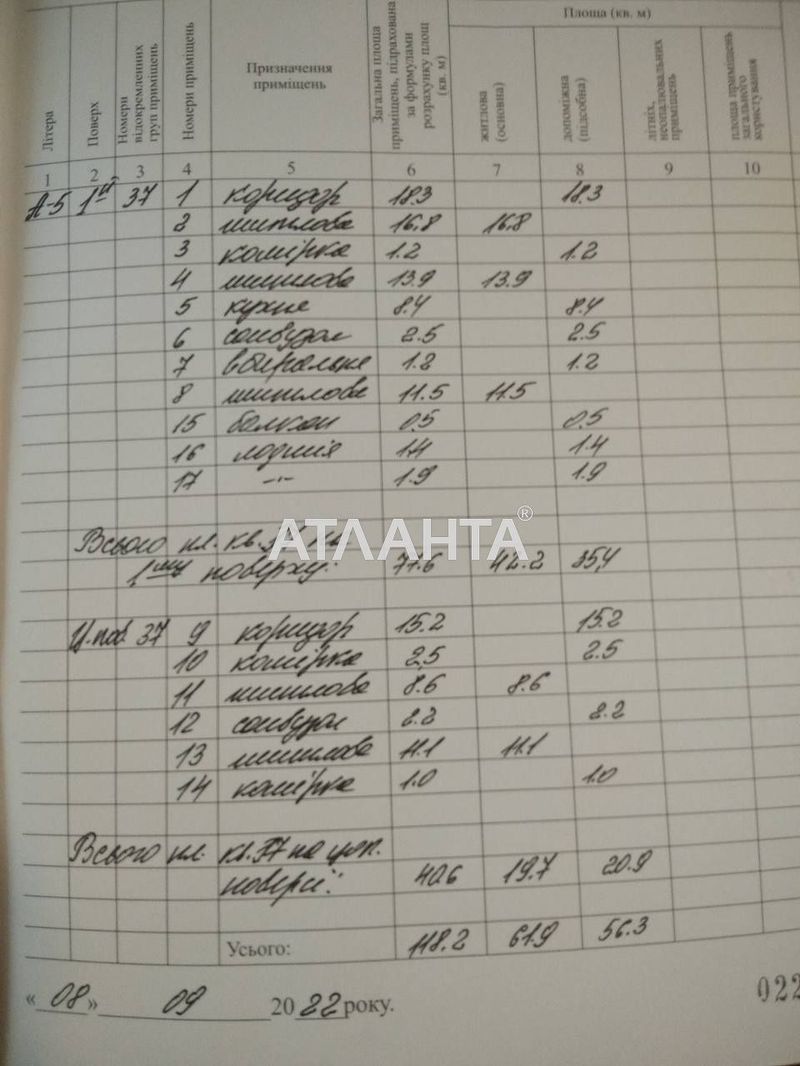 Літера
Поверх
Номери відокремленних груп приміщень
Номери приміщень
Призначення приміщень
Загальна площа приміщень, підрахована за формулами розрахунку площ (кв. м)
Площа (кв. м)
житлова (основна)
допоміжна (підсобна)
літніх, неопалювальних приміщень
площа приміщень загального користування
1 2 3 4 5 6 7 8 9 10
А-5 1й 37 1 коридор 18.3 18.3
2 житлова 16.8 16.8
3 комірка 1.2 1.2
4 житлова 13.9 13.9
5 кухня 8.4 8.4
6 санвузол 2.5 2.5
7 вбиральня 1.2 1.2
8 житлова 11.5 11.5
15 балкон 0.5 0.5
16 лоджія 1.4 1.4
17 -"- 1.9 1.9
Всього пл. кв. 37 на
1му поверху: 77.6 42.2 35,4
АТЛАНТА®
Ц.пов. 37 9 коридор 15.2 15.2
10 комірка 2,5 2.5
11 житлова 8.6 8.6
12 санвузол 2.2 2.2
13 житлова 11.1 11.1
14 комірка 1.0 1.0
Всього пл. кв. 37 на цок.
поверсі: 40.6 19.7 20.9
Усього: 118.2 61.9 56.3
« 08 » 09 20 22 року.
022